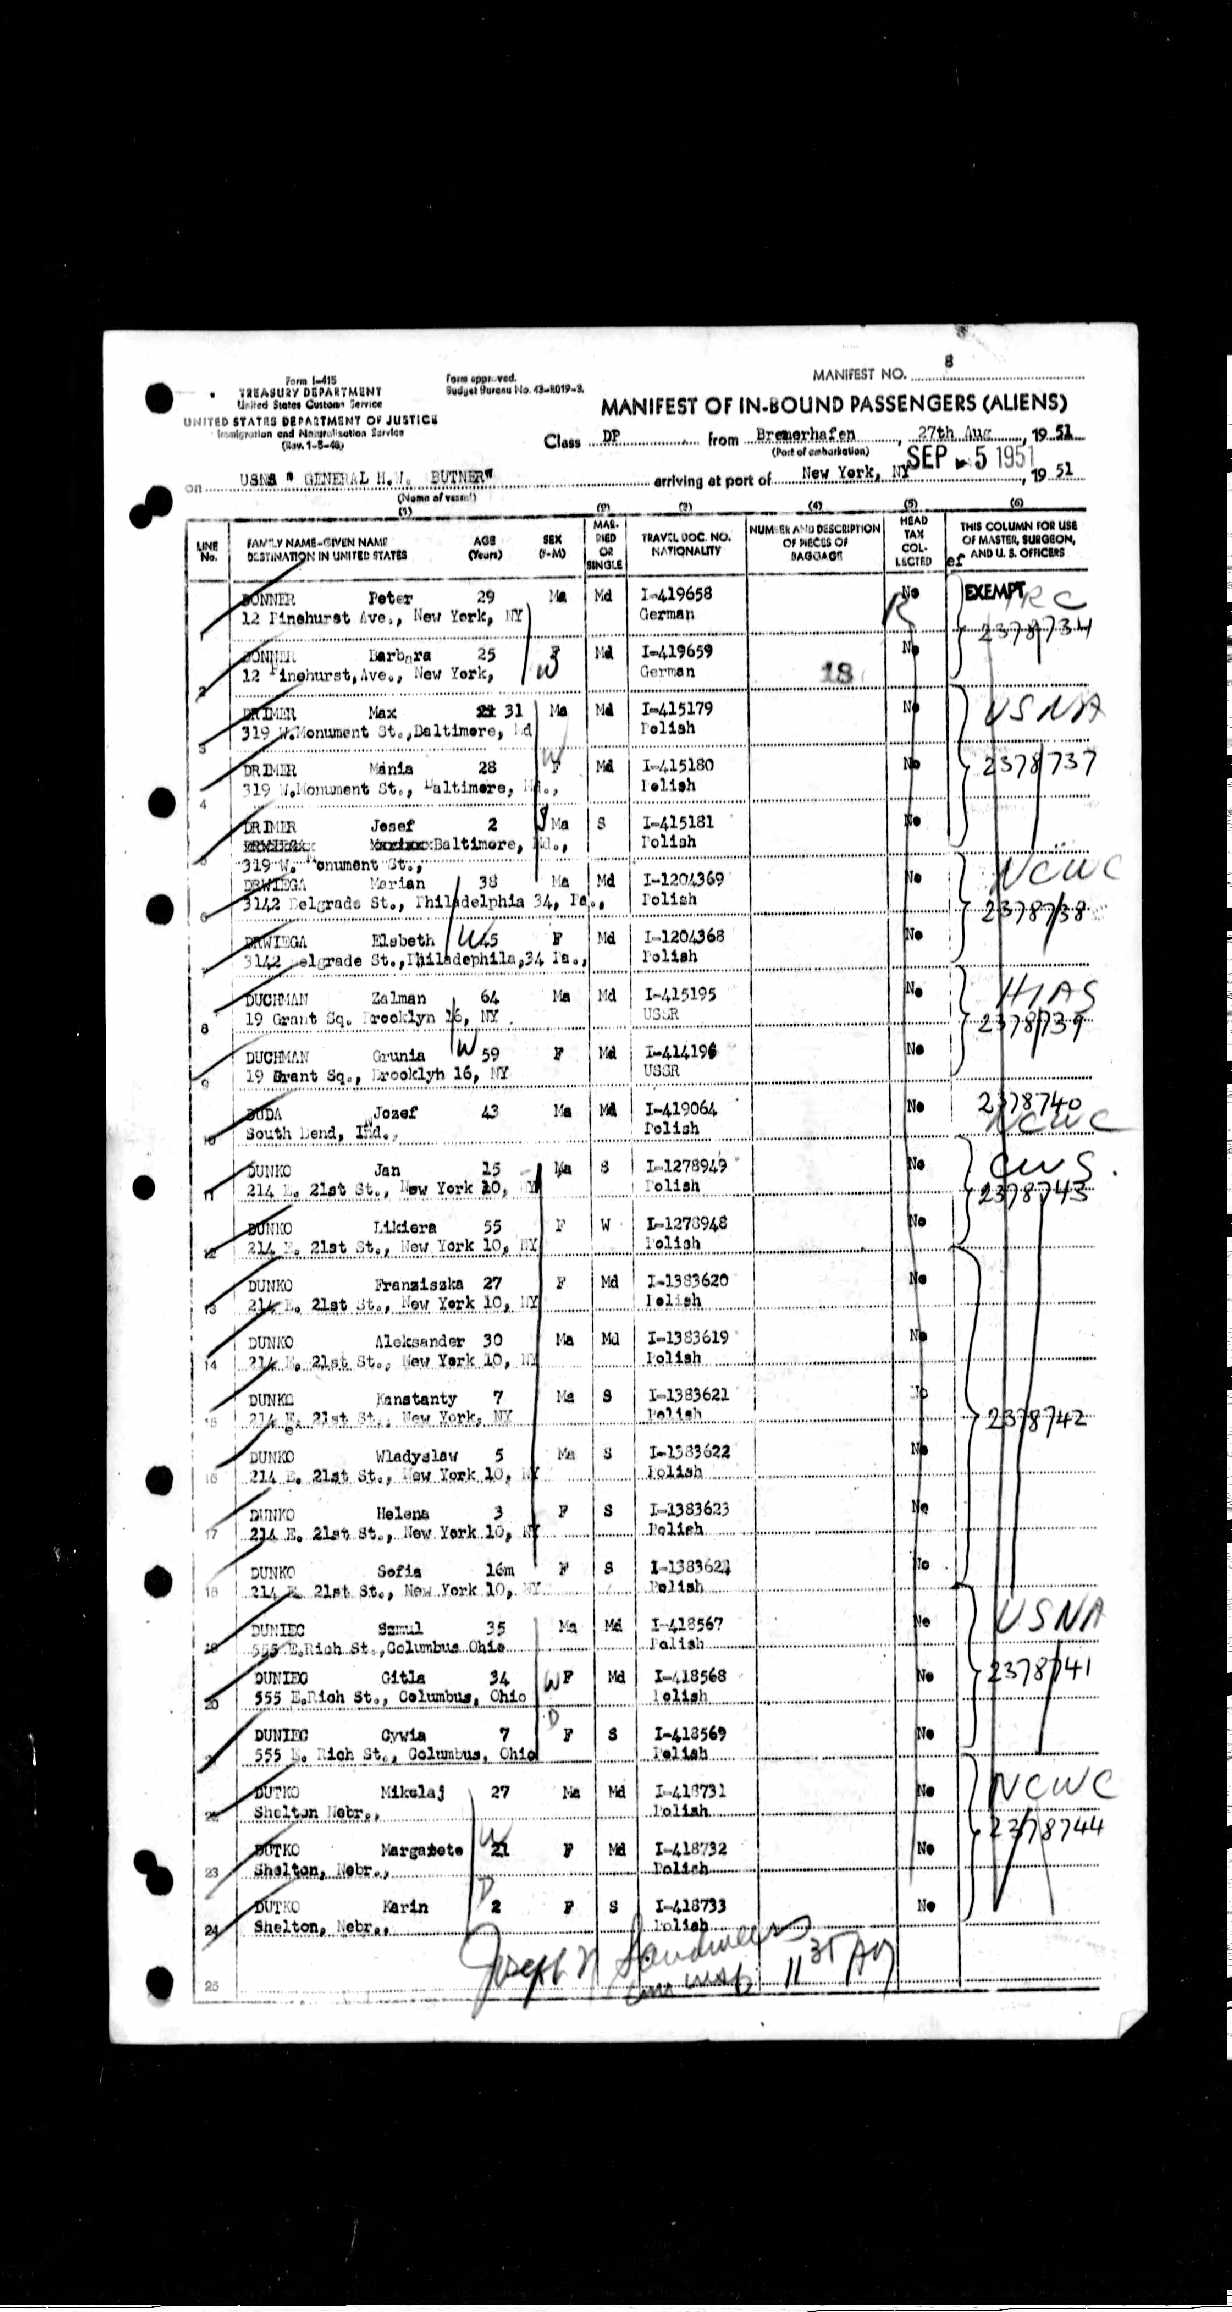 8
MANIFEST NO.
Form I-415
TREASURY DEPARTMENT
United States Customs Service
UNITED STATES DEPARTMENT OF JUSTICE
Immigration and Naturalization Service
Form approved.
Budget Bureau No. 43-R019-3.
MANIFEST OF IN-BOUND PASSENGERS (ALIENS)
Class DP from Bremerhafen, 27th Aug, 19 51
(Port of embarkation)
SEP 5 1951
on USNS " GENERAL H.W. BUTNER" arriving at port of New York, NY, 19 51
(Name of vessel)
(1) (2) (3) (4) (5) (6)
LINE No. FAMILY NAME-GIVEN NAME DESTINATION IN UNITED STATES AGE (Years) SEX (F-M) MARRIED OR SINGLE TRAVEL DOC. NO. NATIONALITY NUMBER AND DESCRIPTION OF PIECES OF BAGGAGE HEAD TAX COLLECTED THIS COLUMN FOR USE OF MASTER, SURGEON, AND U. S. OFFICERS
DONNER Peter 29 Ma Md I-419658 No EXEMPT IRC
1 12 Pinehurst Ave., New York, NY German R 2378734
DONNER Barbara 25 F Md I-419659 No
2 12 Pinehurst, Ave., New York, W German 18
DRIMER Max 31 Ma Md I-415179 No USNA
3 319 W.Monument St.,Baltimore, Md Polish
DRIMER Mania 28 F Md I-415180 No 2378737
4 319 W.Monument St., Baltimore, Md., Polish
DRIMER Josef 2 Ma S I-415181 No
5 Baltimore, Md., Polish
319 W. Monument St.,
DRWIEGA Marian 38 Ma Md I-1204369 No NCWC
6 3142 Belgrade St., Philadelphia 34, Pa., Polish 2378738
DRWIEGA Elsbeth W 45 F Md I-1204368 No
3142 Belgrade St.,Philadephila,34 Pa., Polish
DUCHMAN Zalman 64 Ma Md I-415195 No HIAS
8 19 Grant Sq. Brooklyn 16, NY. USSR 2378739
DUCHMAN Grunia W 59 F Md I-414196 No
9 19 Grant Sq., Brooklyn 16, NY USSR
DUDA Jozef 43 Ma Md I-419064 No 2378740
10 South Bend, Ind., Polish NCWC
DUNKO Jan 15 Ma S I-1278949 No CWS.
11 214 E. 21st St., New York 10, NY Polish 2378743
DUNKO Likiera 55 F W I-1278948 No
12 214 E. 21st St., New York 10, NY Polish
DUNKO Franziszka 27 F Md I-1383620 No
13 214 E. 21st St., New York 10, NY Polish
DUNKO Aleksander 30 Ma Md I-1383619 No
14 214 E. 21st St., New York 10, NY Polish
DUNKO Kanstanty 7 Ma S I-1383621 No
15 214 E. 21st St., New York, NY Polish 2378742
DUNKO Wladyslaw 5 Ma S I-1383622 No
16 214 E. 21st St., New York 10, NY Polish
DUNKO Helena 3 F S I-1383623 No
17 214 E. 21st St., New York 10, NY Polish
DUNKO Sofia 16m F S I-1383624 No
18 214 E. 21st St., New York 10, NY Polish
DUNIEC Szmul 35 Ma Md I-418567 No USNA
19 555 E.Rich St.,Columbus Ohio Polish
DUNIEC Gitla 34 W F Md I-418568 No 2378741
20 555 E.Rich St., Columbus, Ohio Polish
DUNIEC Cywia 7 D F S I-418569 No
21 555 E. Rich St., Columbus, Ohio Polish
DUTKO Mikolaj 27 Ma Md I-418731 No NCWC
22 Shelton Nebr., Polish 2378744
DUTKO Margarete W 21 F Md I-418732 No
23 Shelton, Nebr., Polish
DUTKO Karin D 2 F S I-418733 No
24 Shelton, Nebr., Polish
Joseph
25 11 35 AM